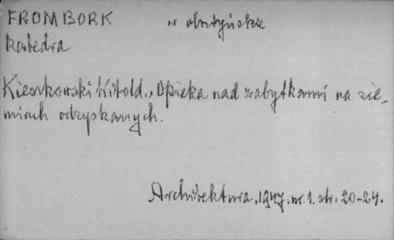 FROMBORK w olsztyńskie
katedra
Kieszkowski Witold., Opieka nad zabytkami na zie-
miach odzyskanych.
Architektura, 1947. nr. 1. str. 20-24.